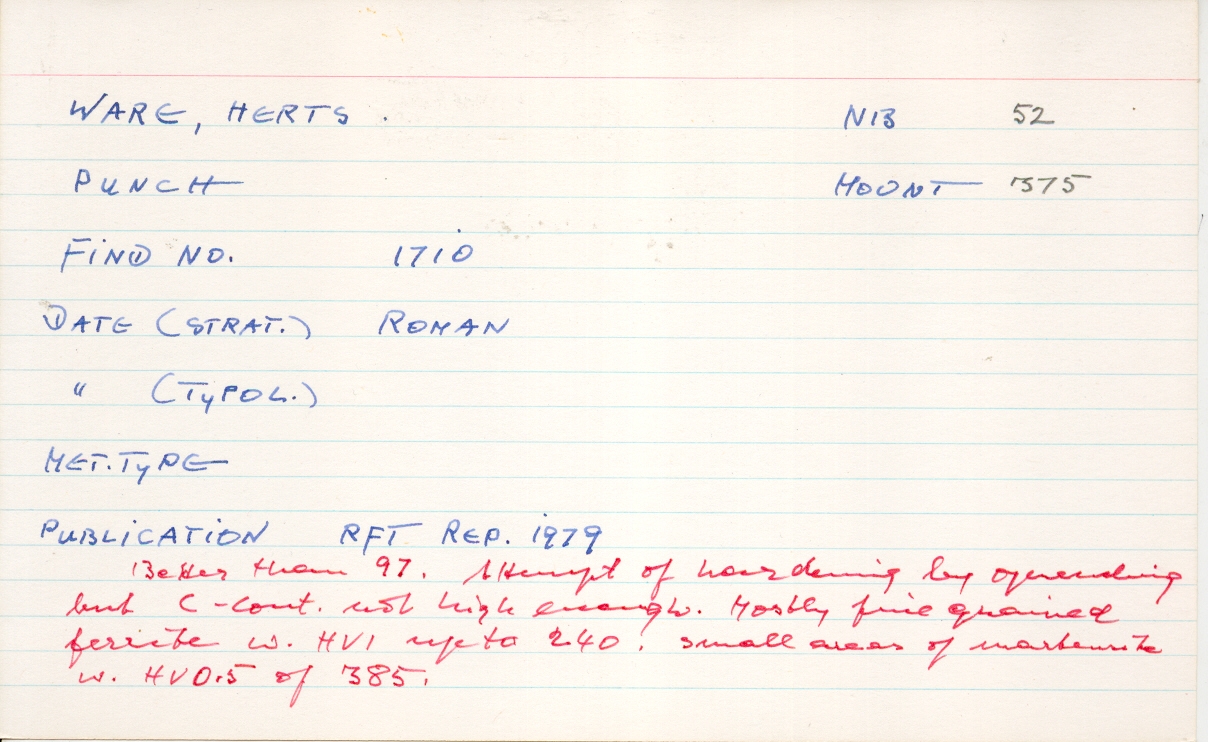 WARE, HERTS. NIB 52
PUNCH MOUNT 375
FIND NO. 1710
DATE (STRAT.) ROMAN
" (TYPOL.)
MET. TYPE
PUBLICATION RFT REP. 1979
Better than 97. Attempt of hardening by quenching
but C-cont. not high enough. Mostly fine grained
ferrite w. HV1 up to 240. small areas of martensite
w. HV0.5 of 385.